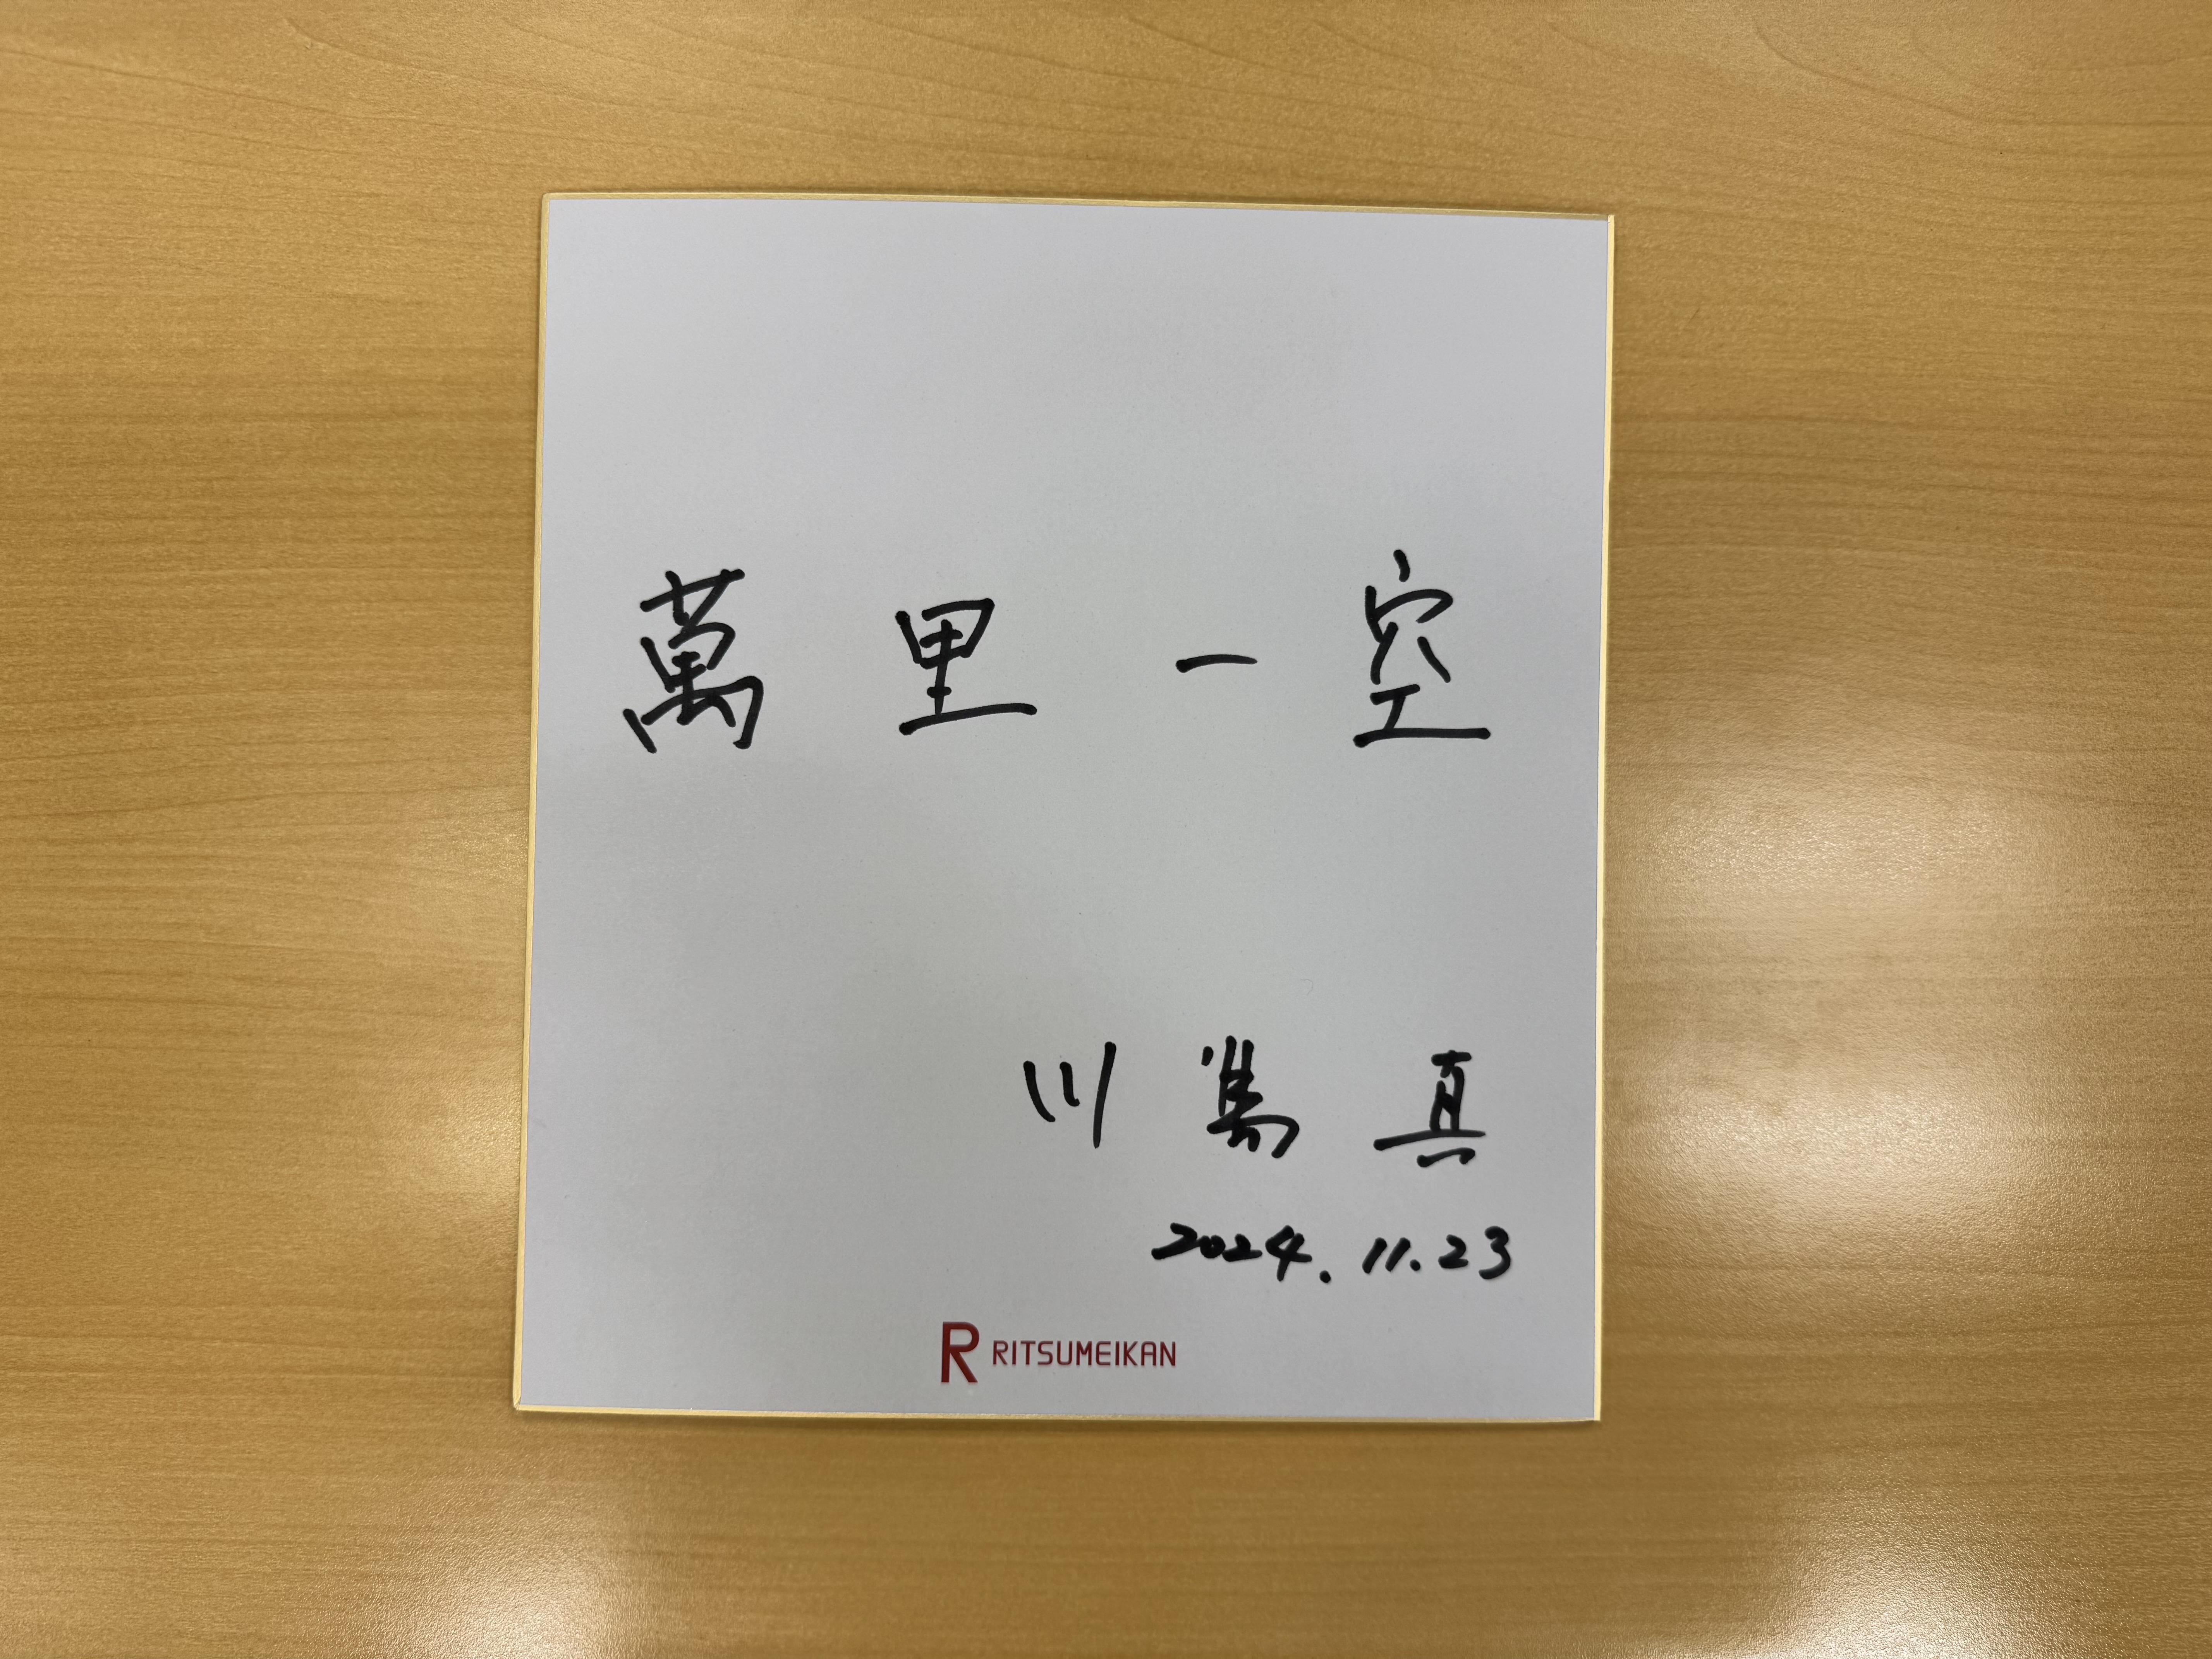 萬里一空
川嶌真
2024.11.23
R RITSUMEIKAN